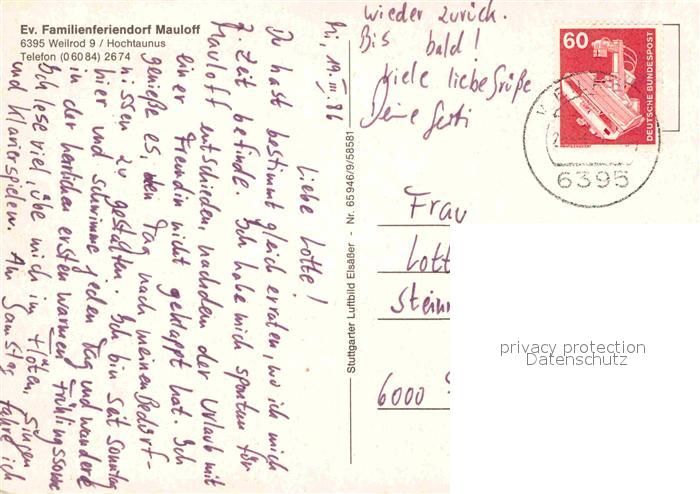 Ev. Familienferiendorf Mauloff
6395 Weilrod 9 / Hochtaunus
Telefon (0 60 84) 26 74
Mi, 19. III. 86
Liebe Lotte!
Du hast bestimmt gleich erraten, wo ich mich
z. Zeit befinde. Ich habe mich spontan für
Mauloff entschieden, nachdem der Urlaub mit
einer Freundin nicht geklappt hat. Ich
genieße es, den Tag nach meinen Bedürf-
nissen zu gestalten. Ich bin seit Sonntag
hier und schwimme jeden Tag und wandere
in der herrlichen ersten warmen Frühlingssonne
Ich lese viel, übe mich im Flöten, Singen
und Klavierspielen. Am Samstag fahre ich
wieder zurück.
Bis bald!
Viele liebe Grüße
Deine Gerti
Stuttgarter Luftbild Elsäßer - Nr. 65 946/9/58581
60
DEUTSCHE BUNDESPOST
6395
Frau
Lott
Stein
6000
privacy protection
Datenschutz